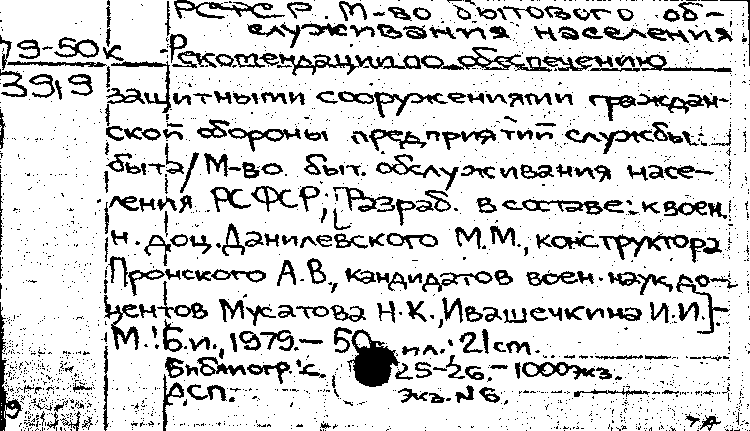 РСФСР. М-во бытового об-
служивания населения.
79-50к Рекомендации по обеспечению
3919 защитными сооружениями граждан-
ской обороны предприятий службы
быта/М-во быт. обслуживания насе-
ления РСФСР; [Разраб. в составе: к воен.
н. доц. Данилевского М.М., конструктора
Пронского А.В., кандидатов воен. наук, до-
центов Мусатова Н.К., Ивашечкина И.И.].-
М.: Б.и., 1979.- 50 ил.; 21 cm.
Библиогр.: с. 25-26.- 1000 экз.
ДСП. Экз. N 6.